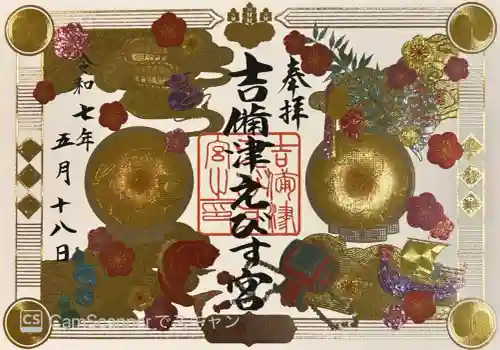 奉拝
吉備津えびす宮
令和七年
五月十八日
吉備津
宮
印
CS CamScannerでスキャン